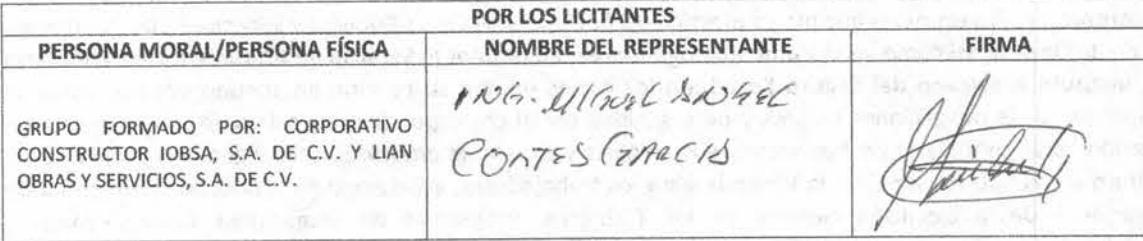 POR LOS LICITANTES
PERSONA MORAL/PERSONA FÍSICA NOMBRE DEL REPRESENTANTE FIRMA
GRUPO FORMADO POR: CORPORATIVO
CONSTRUCTOR IOBSA, S.A. DE C.V. Y LIAN
OBRAS Y SERVICIOS, S.A. DE C.V.
ING. MIGUEL ANGEL
CORTES GARCIA